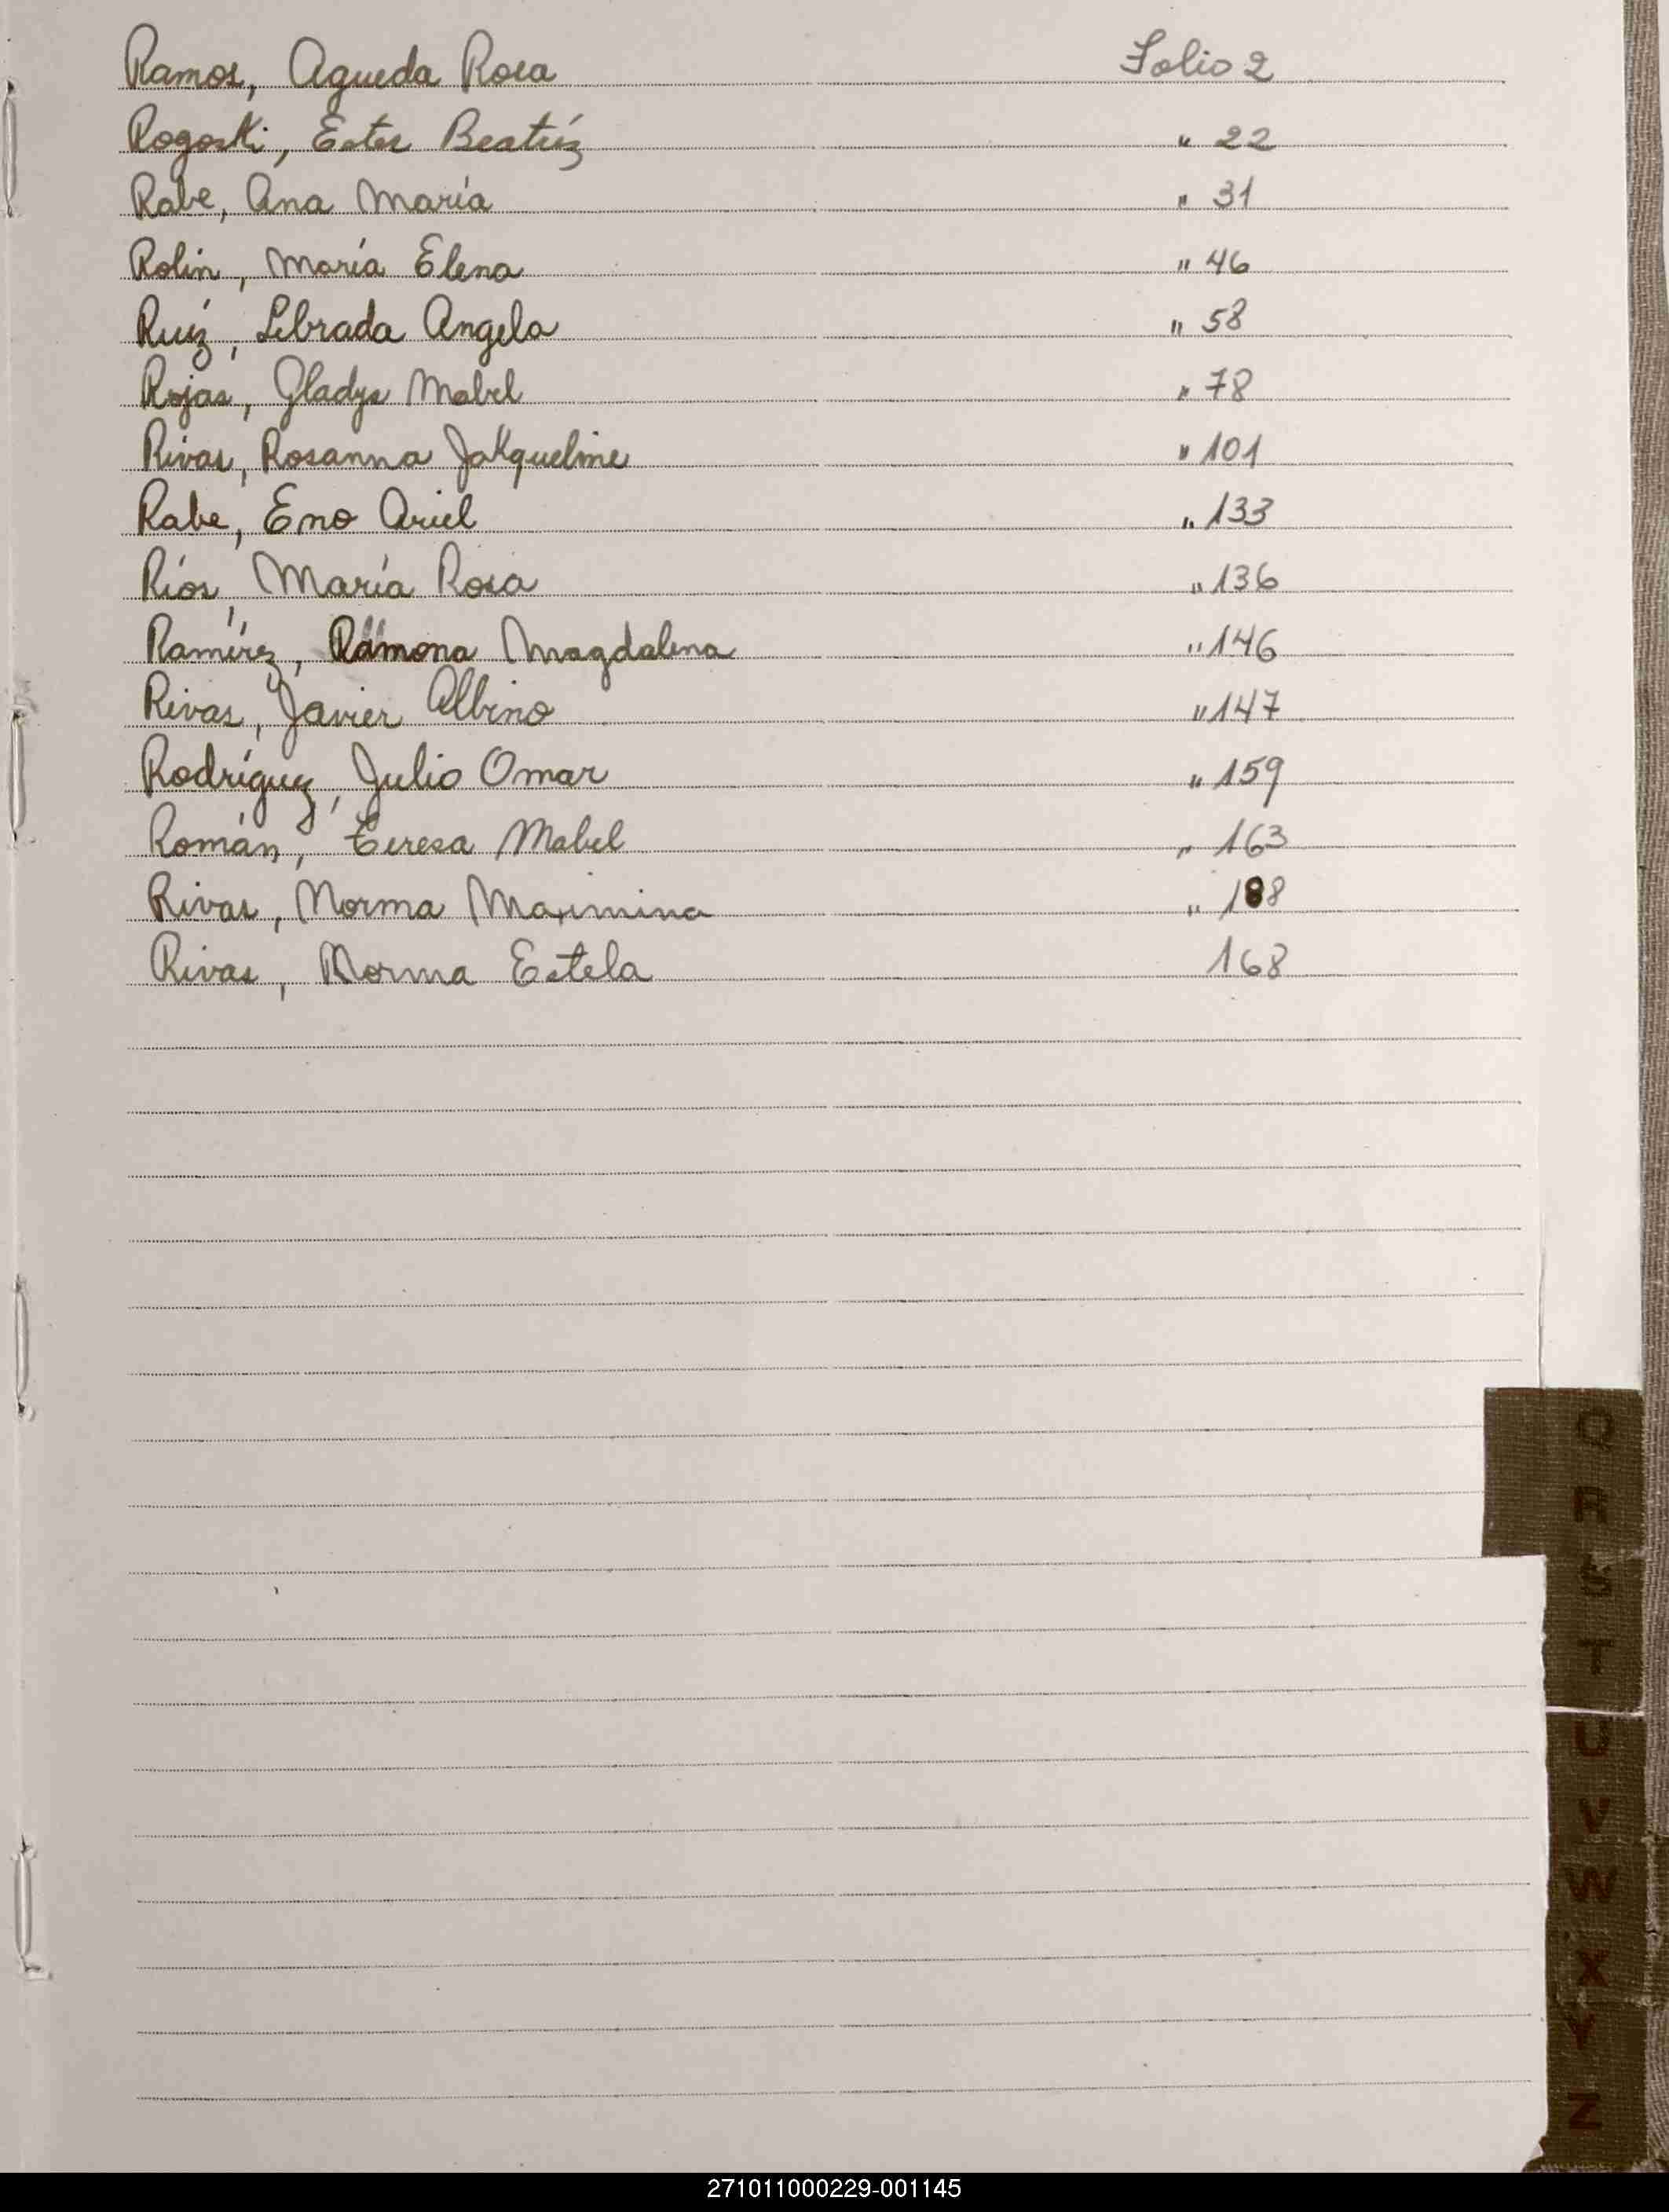 Ramos, Agueda Rosa Folio 2
Rogoski, Ester Beatríz " 22
Rabe, Ana María " 31
Rolin, María Elena " 46
Ruíz, Librada Angela " 58
Rojas, Gladys Mabel " 78
Rivas, Rosanna Jakqueline " 101
Rabe, Eno Ariel " 133
Ríos, María Rosa " 136
Ramírez, Ramona Magdalena " 146
Rivas, Javier Albino " 147
Rodríguez, Julio Omar " 159
Román, Teresa Mabel " 163
Rivas, Norma Maximina " 188
Rivas, Norma Estela 168
Q
R
S
T
U
V
W
X
Y
Z
271011000229-001145